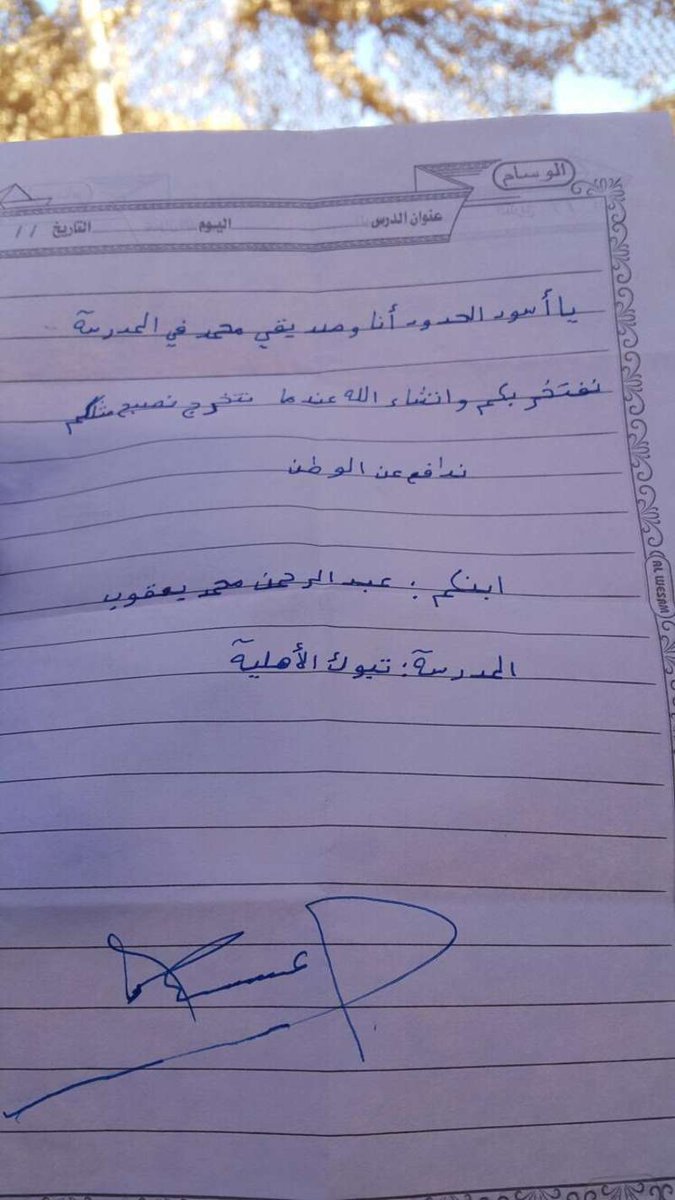 الوسام
عنوان الدرس اليوم التاريخ / /
يا أسود الحدود أنا وصديقي محمد في المدرسة
نفتخر بكم وانشاء الله عندما نتخرج نصبح مثلكم
ندافع عن الوطن
ابنكم : عبد الرحمن محمد يعقوب
المدرسة : تبوك الأهلية
AL WESAM